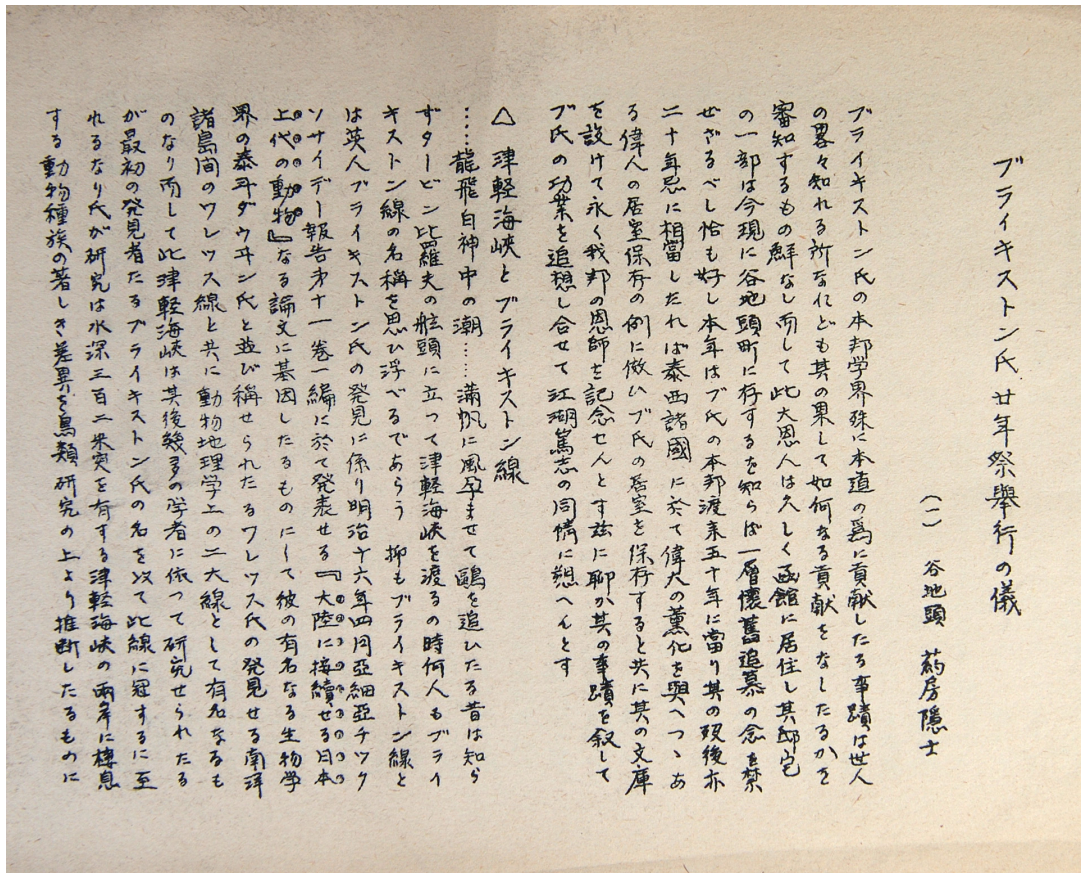 ブライキストン氏廿年祭舉行の儀
(一) 谷地頭 葯房隱士
ブライキストン氏の本邦学界殊に本道の爲に貢献したる事蹟は世人
の畧々知れる所なれども其の果して如何なる貢献をなしたるかを
審知するもの鮮なし而して此大恩人は久しく函館に居住し其邸宅
の一部は今現に谷地頭町に存するを知らば一層懷舊追慕の念を禁
ぜざるべし恰も好し本年はブ氏の本邦渡来五十年に當り其の歿後亦
二十年忌に相當したれば泰西諸國に於て偉大の薫化を與へつゝあ
る偉人の居室保存の例に倣ひブ氏の居室を保存すると共に其の文庫
を設けて永く我邦の恩師を記念せんとす茲に聊か其の事蹟を叙して
ブ氏の功業を追想し合せて江湖篤志の同情に愬へんとす
△ 津軽海峡とブライキストン線
……龍飛白神中の潮……満帆に風孕ませて鷗を追ひたる昔は知ら
ずタービン比羅夫の舷頭に立つて津軽海峡を渡るの時何人もブライ
キストン線の名稱を思ひ浮べるであらう 抑もブライキストン線と
は英人ブライキストン氏の発見に係り明治十六年四月亞細亞チック
ソサイデー報告才十一巻一編に於て発表せる『大陸に接續せる日本
上代の動物』なる論文に基因したるものにして彼の有名なる生物学
界の泰斗ダウヰン氏と並び稱せられたるワレッス氏の発見せる南洋
諸島間のワレッス線と共に動物地理学上の二大線として有名なるも
のなり而して此津軽海峡は其後幾多の学者に依つて研究せられたる
が最初の発見者たるブライキストン氏の名を以て此線に冠するに至
れるなり氏が研究は水深三百二米突を有する津軽海峡の両岸に棲息
する動物種族の著しき差異を鳥類研究の上より推断したるものに